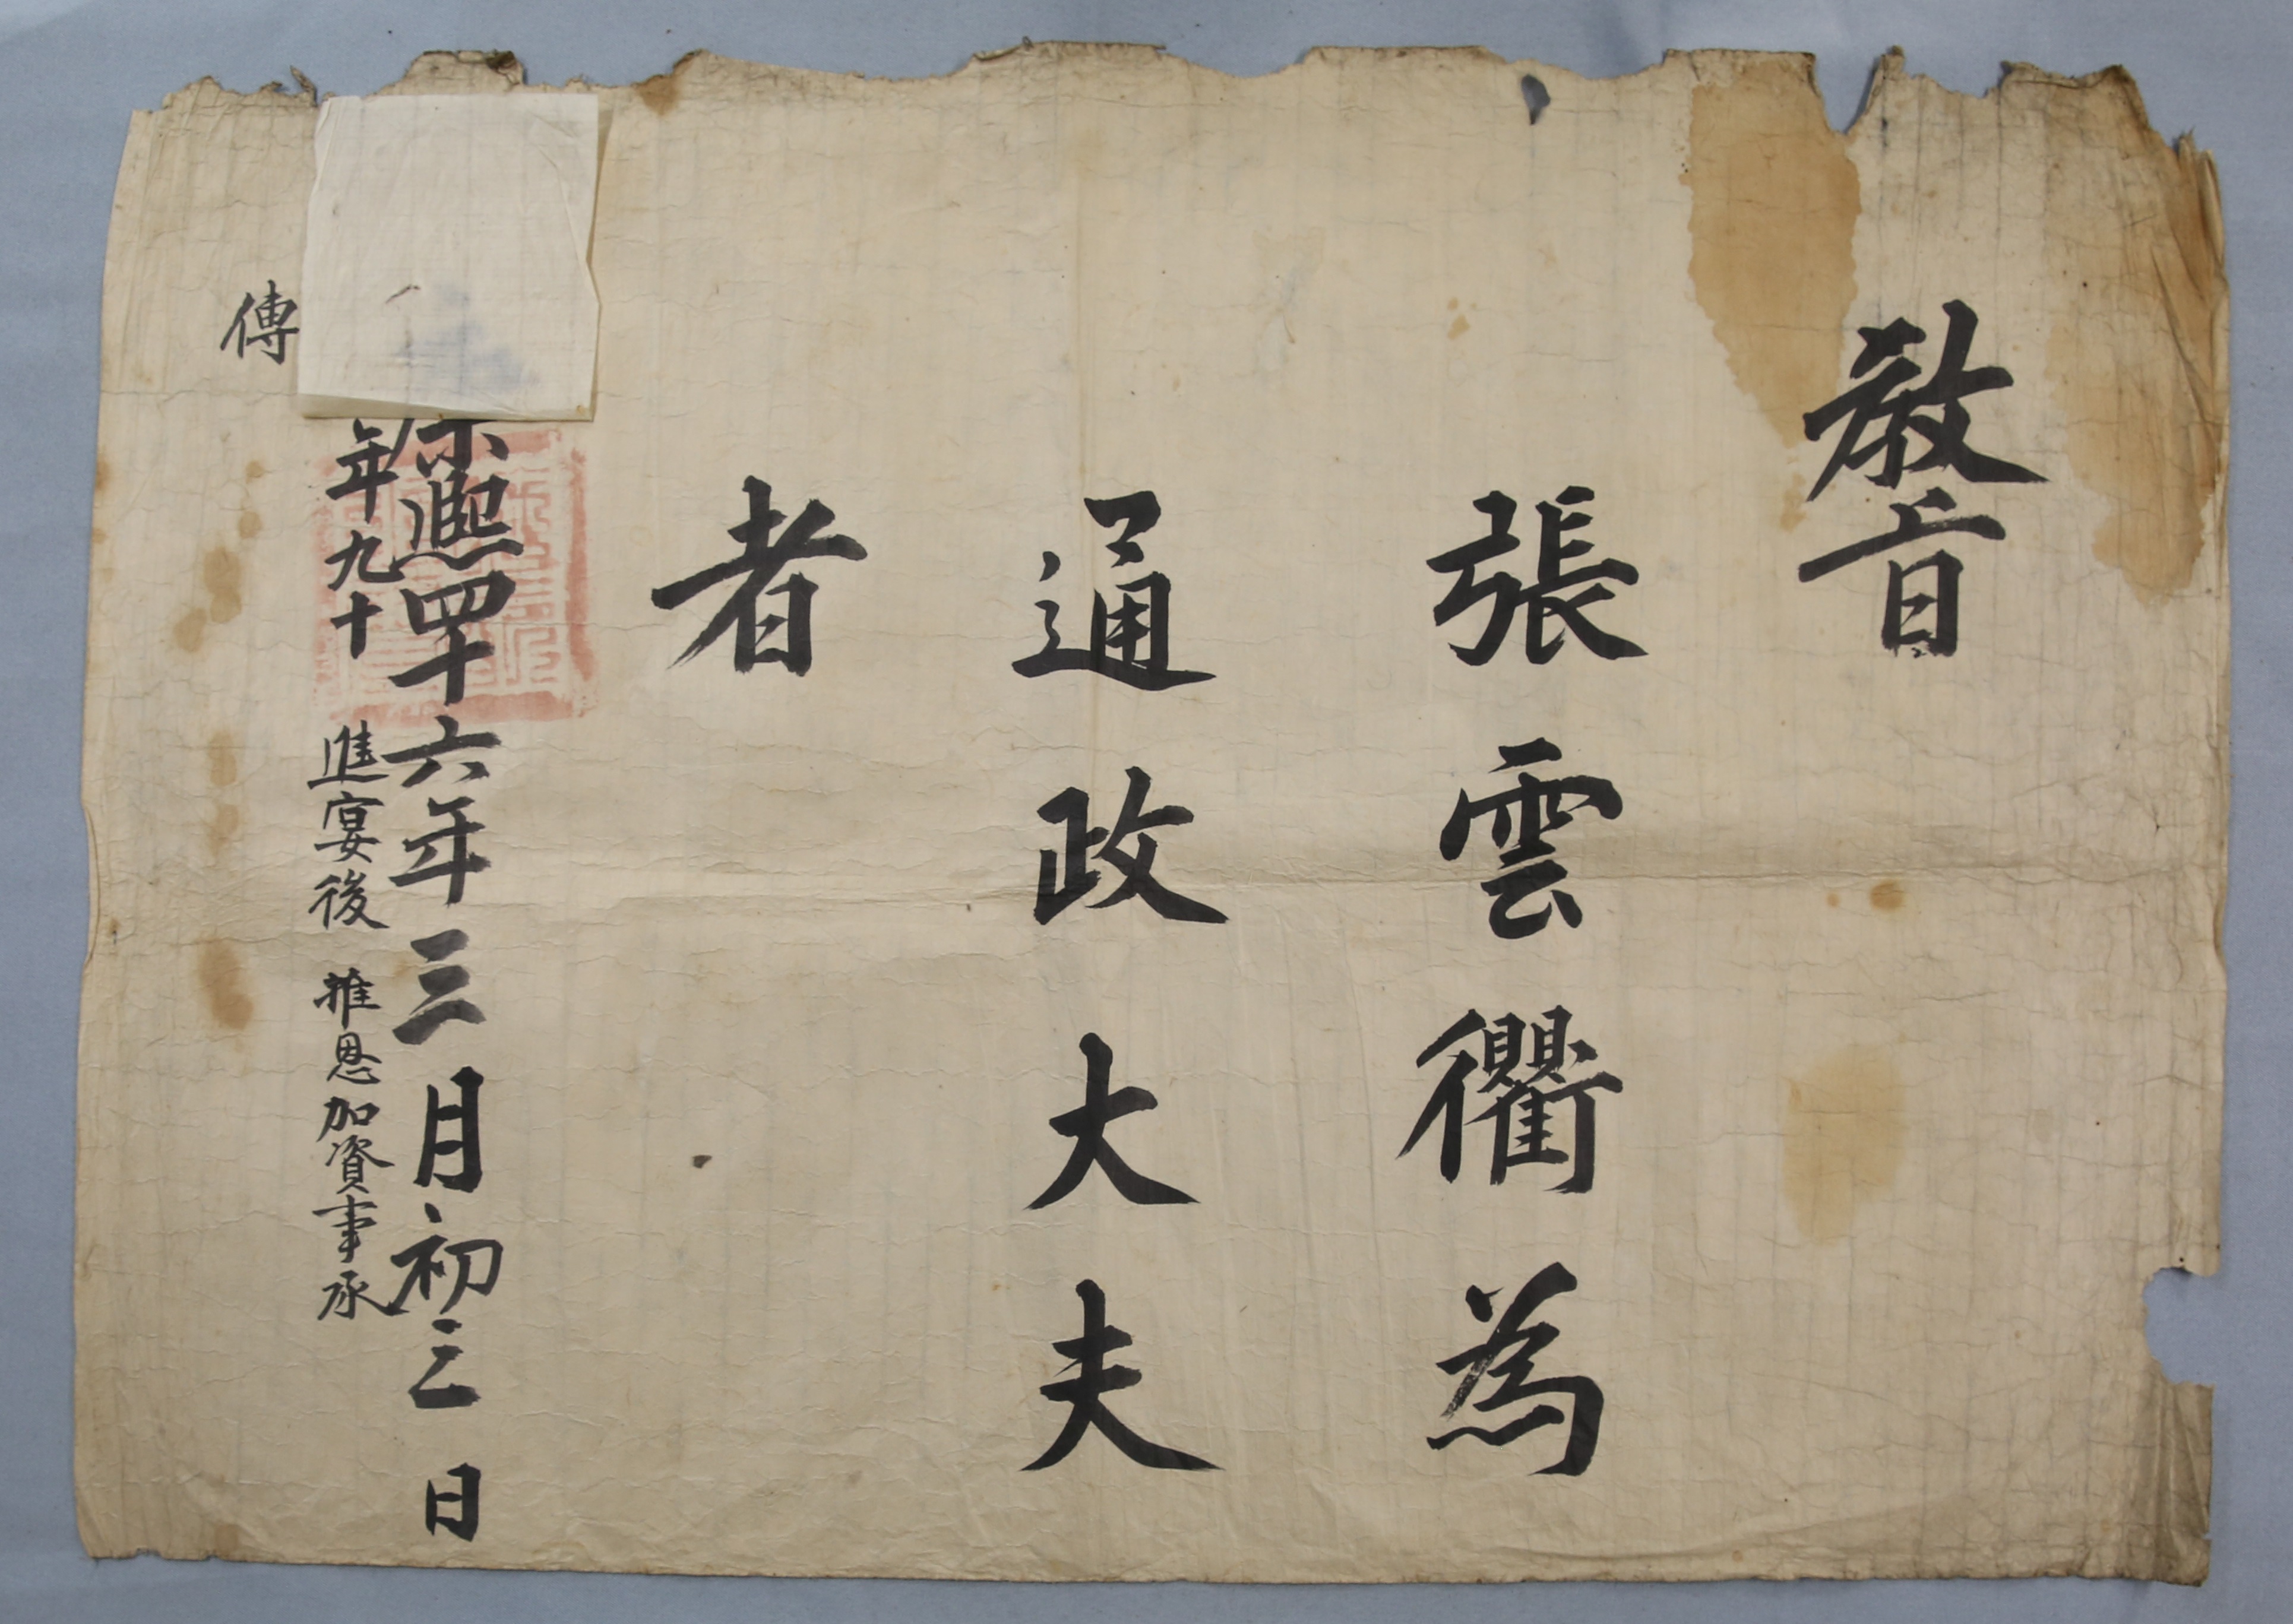 敎旨
張雲衢為
通政大夫
者
康熙四十六年三月初三日
年九十 進宴後 推恩加資事承
傳